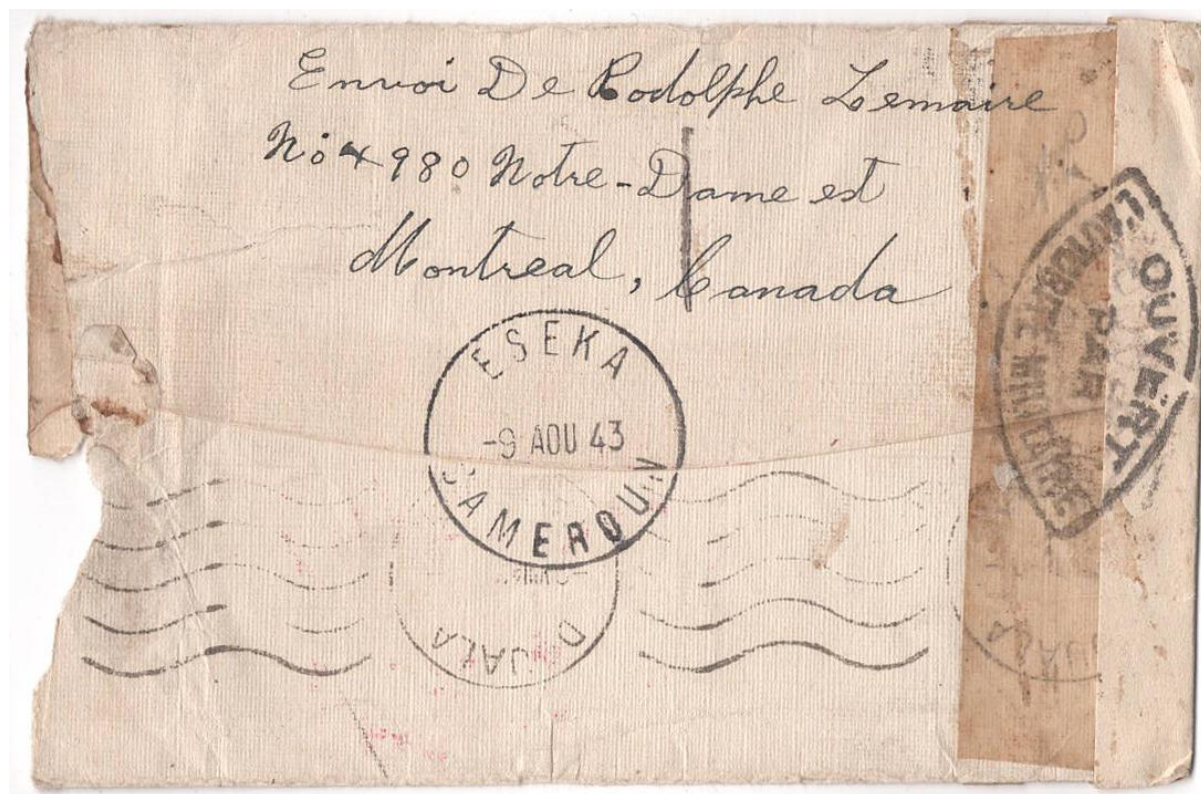 Envoi De Rodolphe Lemaire
No 4980 Notre-Dame est
Montreal, Canada
ESEKA
-9 AOU 43
CAMEROUN
DOUALA
DOUALA
OUVERT
PAR
L'AUTORITÉ MILITAIRE